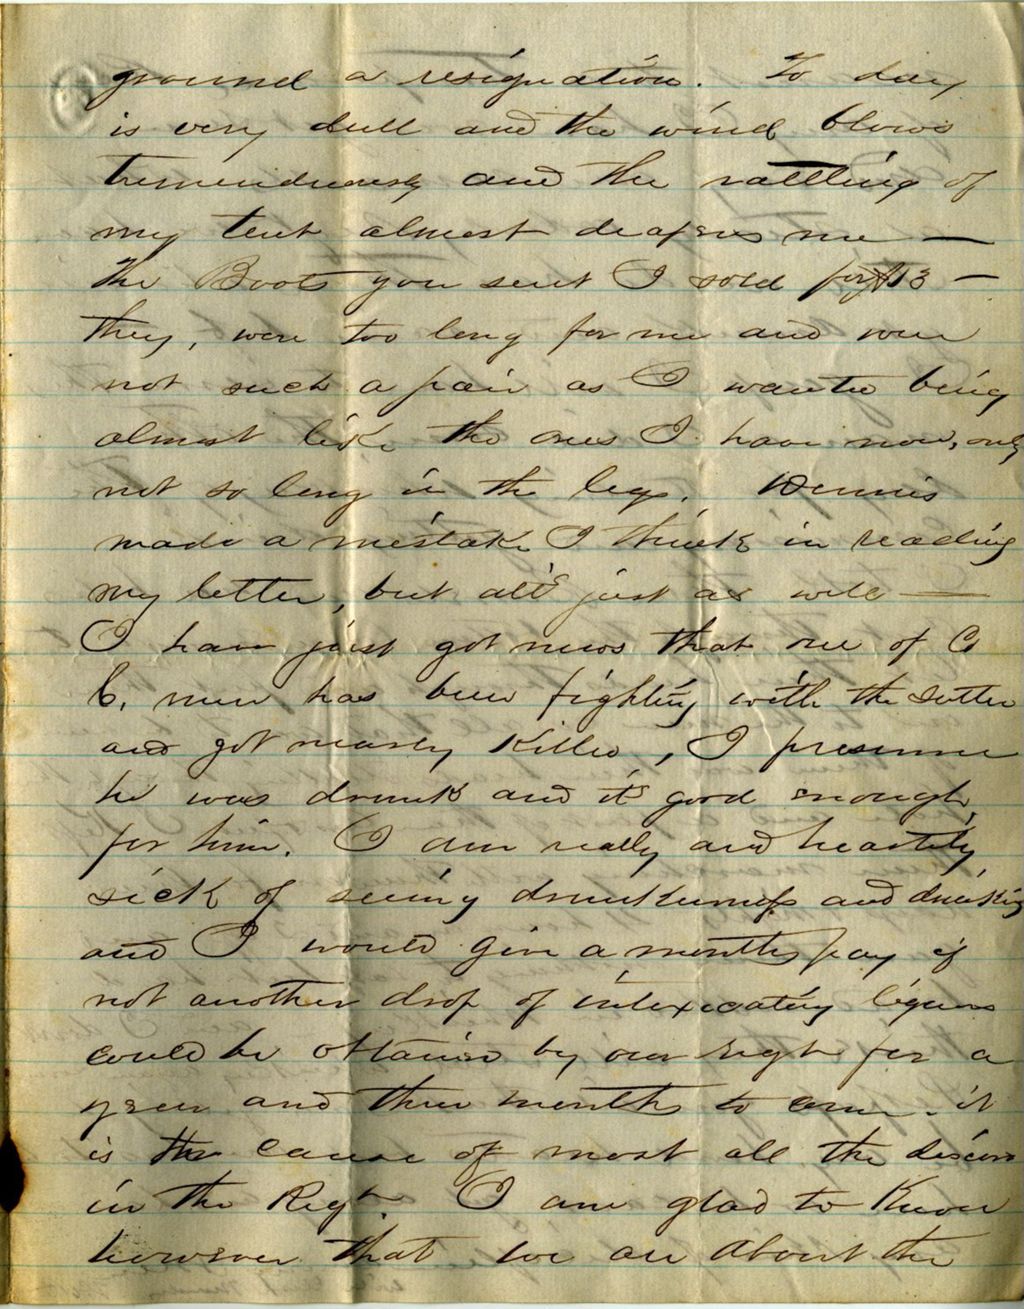 ground a resignation. To day
is very dull and the wind blows
tremendiously and the rattling of
my tent almost deafens me —
the Boots you sent I sold for $13 —
they, were too long for me and were
not such a pair as I wanted being
almost like the ones I have now, only
not so long in the legs. Dennis
made a mistake I think in reading
my letter, but all's just as well —
I have just got news that one of Co
C. men has been fighting with the sutler
and got nearly killed, I presume
he was drunk and it's good enough
for him. I am really and heartily
sick of seeing drunkenness and drinking
and I would give a months pay if
not another drop of intoxicating liquors
could be obtained by our Regt for a
year and three months to come. it
is the cause of most all the
in the Regt. I am glad to know
however that we are about the